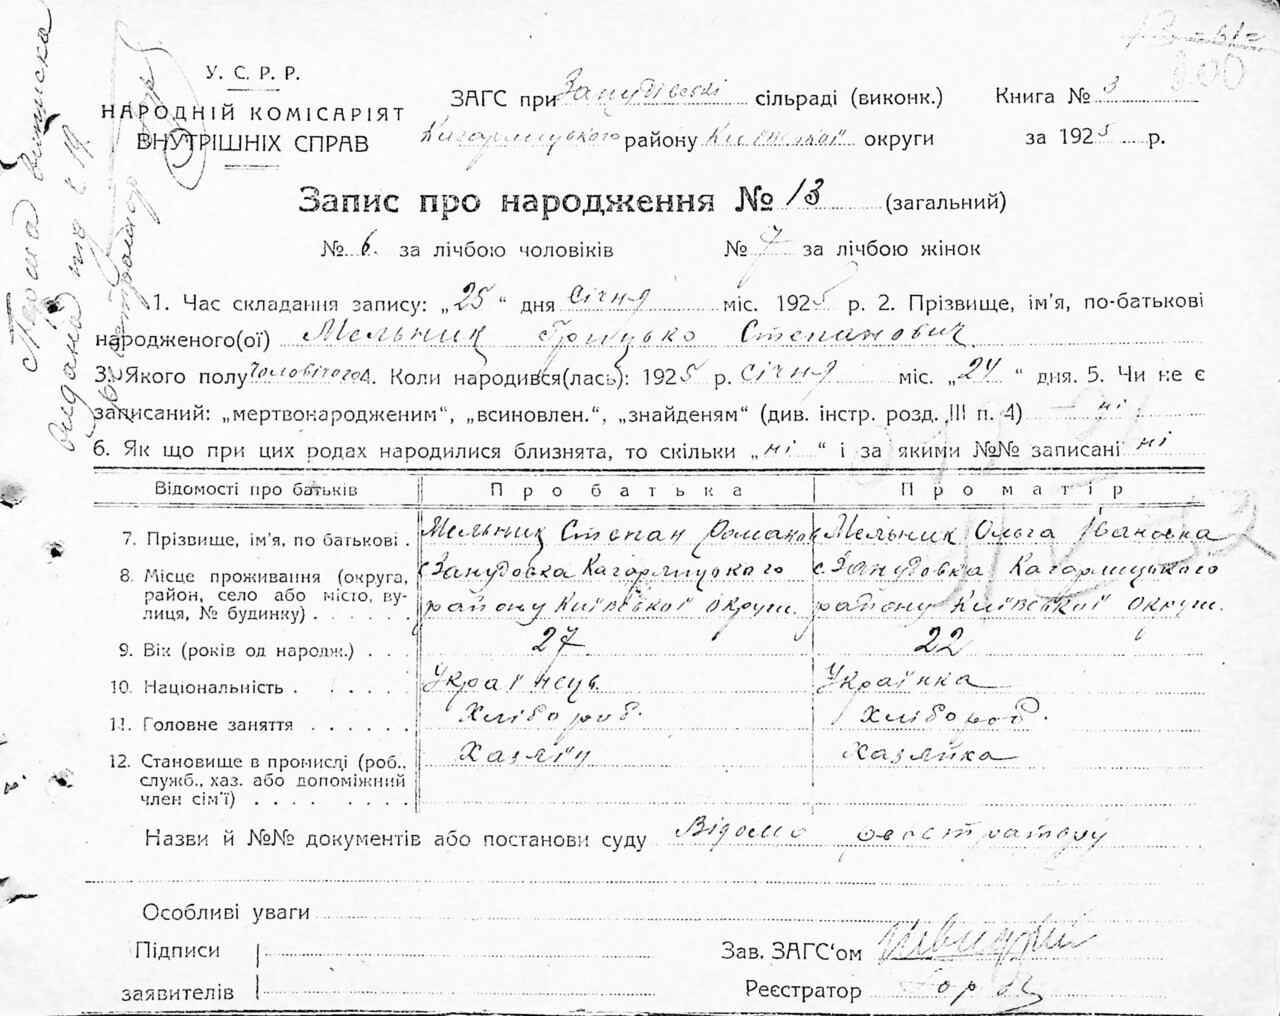 У. С. Р. Р.
НАРОДНІЙ КОМІСАРІЯТ
ВНУТРІШНІХ СПРАВ
ЗАГС при Занудівські сільраді (виконк.) Книга № 3
Кагарлицького району Київської округи за 1925 р.
Запис про народження № 13 (загальний)
№ 6. за лічбою чоловіків № 7 за лічбою жінок
1. Час складання запису: „25“ дня Січня міс. 1925 р. 2. Прізвище, ім'я, по-батькові
народженого(ої) Мельник Грицько Степанович
3. Якого полу чоловічого 4. Коли народився(лась): 1925 р. січня міс. „24“ дня. 5. Чи не є
записаний: „мертвонародженим“, „всиновлен.“, „знайденям“ (див. інстр. розд. III п. 4) ні
6. Як що при цих родах народилися близнята, то скільки „ні“ і за якими №№ записані ні
Відомості про батьків Про батька Про матір
7. Прізвище, ім'я, по батькові . Мельник Степан Романов Мельник Ольга Івановна
8. Місце проживання (округа, с Занудовка Кагарлицького с. Занудовка Кагарлицького
район, село або місто, ву-
лиця, № будинку) . . . . . . району Київської округи. району Київської округи.
9. Вік (років од народж.) . . . 27 22
10. Національність . . . . . Українець Українка
11. Головне заняття . . . . . . Хлібороб. Хлібороб.
12. Становище в промислі (роб., Хазяїн Хазяйка
служб., хаз. або допоміжний
член сім'ї) . . . . . . . .
Назви й №№ документів або постанови суду Відомо реєстратору
Особливі уваги
Підписи
заявителів
Зав. ЗАГС'ом
Реєстратор
Перша виписка
видана під № 19.
Реєстратор